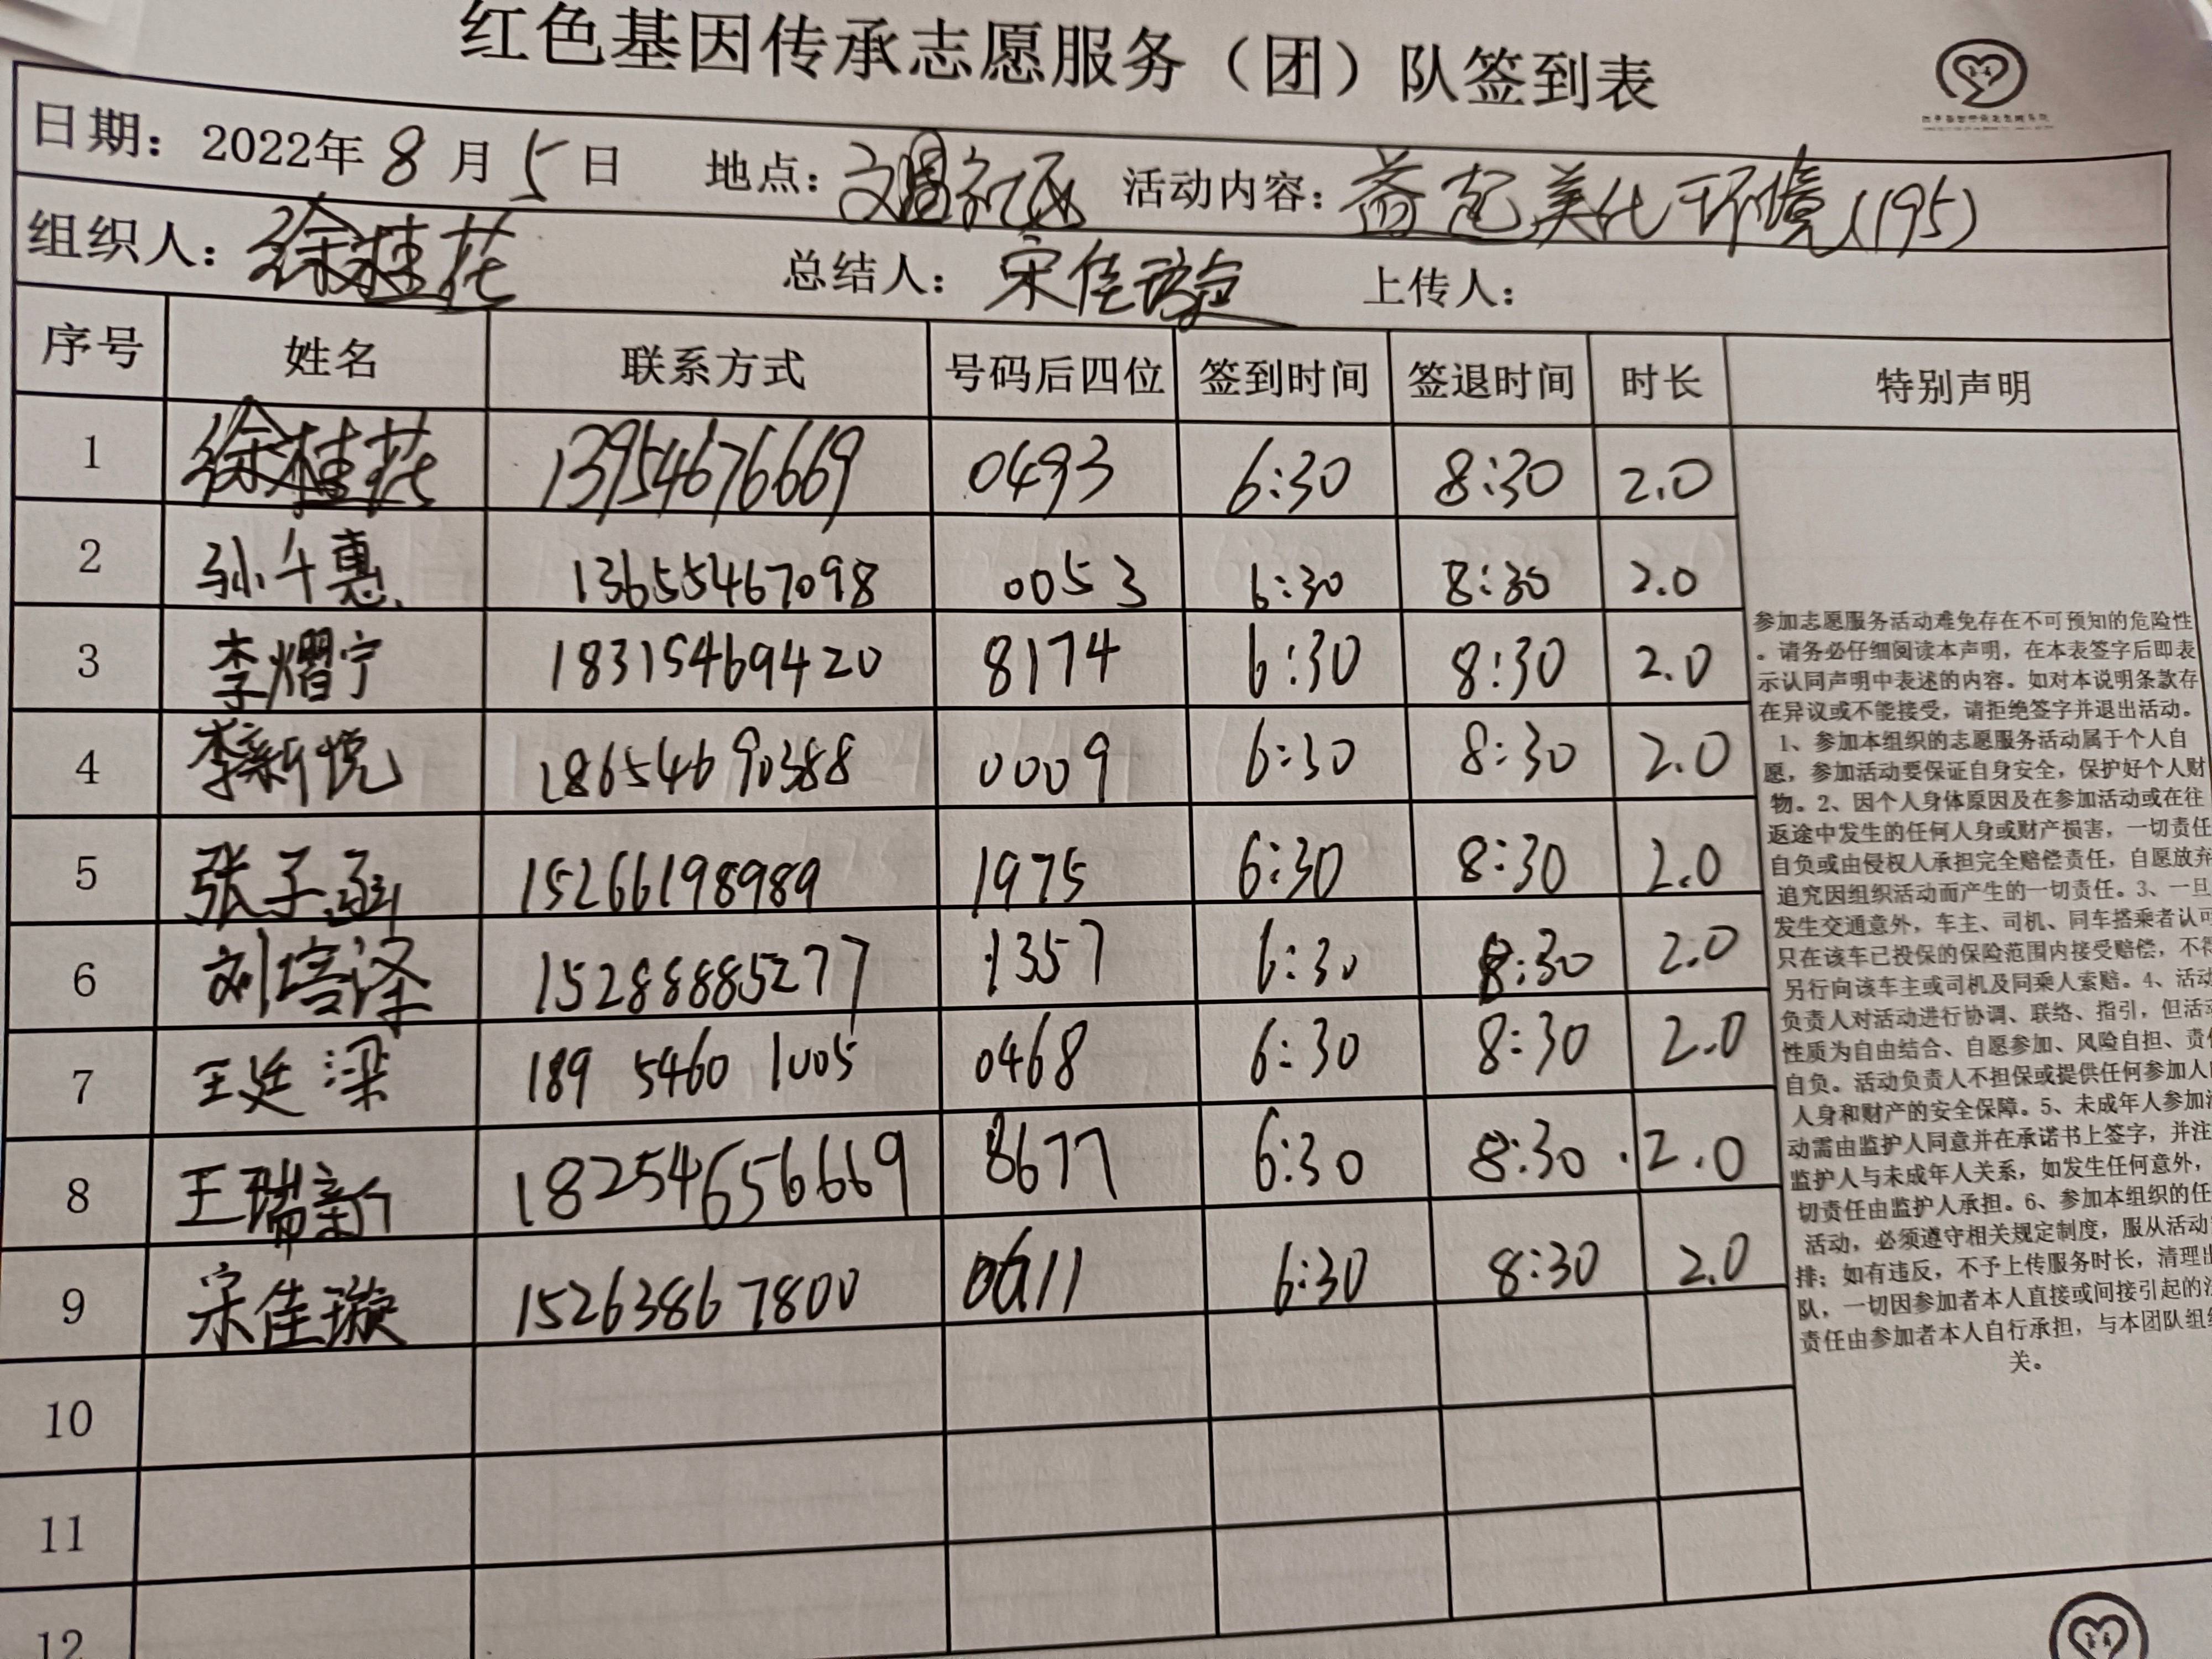 红色基因传承志愿服务（团）队签到表
日期：2022年8月5日 地点：文昌社区 活动内容：益起美化环境(195)
组织人：徐桂花 总结人：宋佳璇 上传人：
序号 姓名 联系方式 号码后四位 签到时间 签退时间 时长 特别声明
1 徐桂花 13954676669 0493 6:30 8:30 2.0
2 孙千惠 13655467098 0053 6:30 8:30 2.0
3 李熠宁 18315469420 8174 6:30 8:30 2.0
4 李新悦 18654690388 0009 6:30 8:30 2.0
5 张子涵 15266198989 1975 6:30 8:30 2.0
6 刘培泽 15288885277 1357 6:30 8:30 2.0
7 王廷深 189 5460 1005 0468 6:30 8:30 2.0
8 王瑞新 18254656669 8677 6:30 8:30 2.0
9 宋佳璇 15263867800 0611 6:30 8:30 2.0
10
11
12
参加志愿服务活动难免存在不可预知的危险性
。请务必仔细阅读本声明，在本表签字后即表
示认同声明中表述的内容。如对本说明条款存
在异议或不能接受，请拒绝签字并退出活动。
1、参加本组织的志愿服务活动属于个人自
愿，参加活动要保证自身安全，保护好个人财
物。2、因个人身体原因及在参加活动或在往
返途中发生的任何人身或财产损害，一切责任
自负或由侵权人承担完全赔偿责任，自愿放弃
追究因组织活动而产生的一切责任。3、一旦
发生交通意外，车主、司机、同车搭乘者认可
只在该车已投保的保险范围内接受赔偿，不得
另行向该车主或司机及同乘人索赔。4、活动
负责人对活动进行协调、联络、指引，但活动
性质为自由结合、自愿参加、风险自担、责任
自负。活动负责人不担保或提供任何参加人的
人身和财产的安全保障。5、未成年人参加活
动需由监护人同意并在承诺书上签字，并注
监护人与未成年人关系，如发生任何意外，
切责任由监护人承担。6、参加本组织的任
活动，必须遵守相关规定制度，服从活动
排；如有违反，不予上传服务时长，清理出
队，一切因参加者本人直接或间接引起的法
责任由参加者本人自行承担，与本团队组织
关。